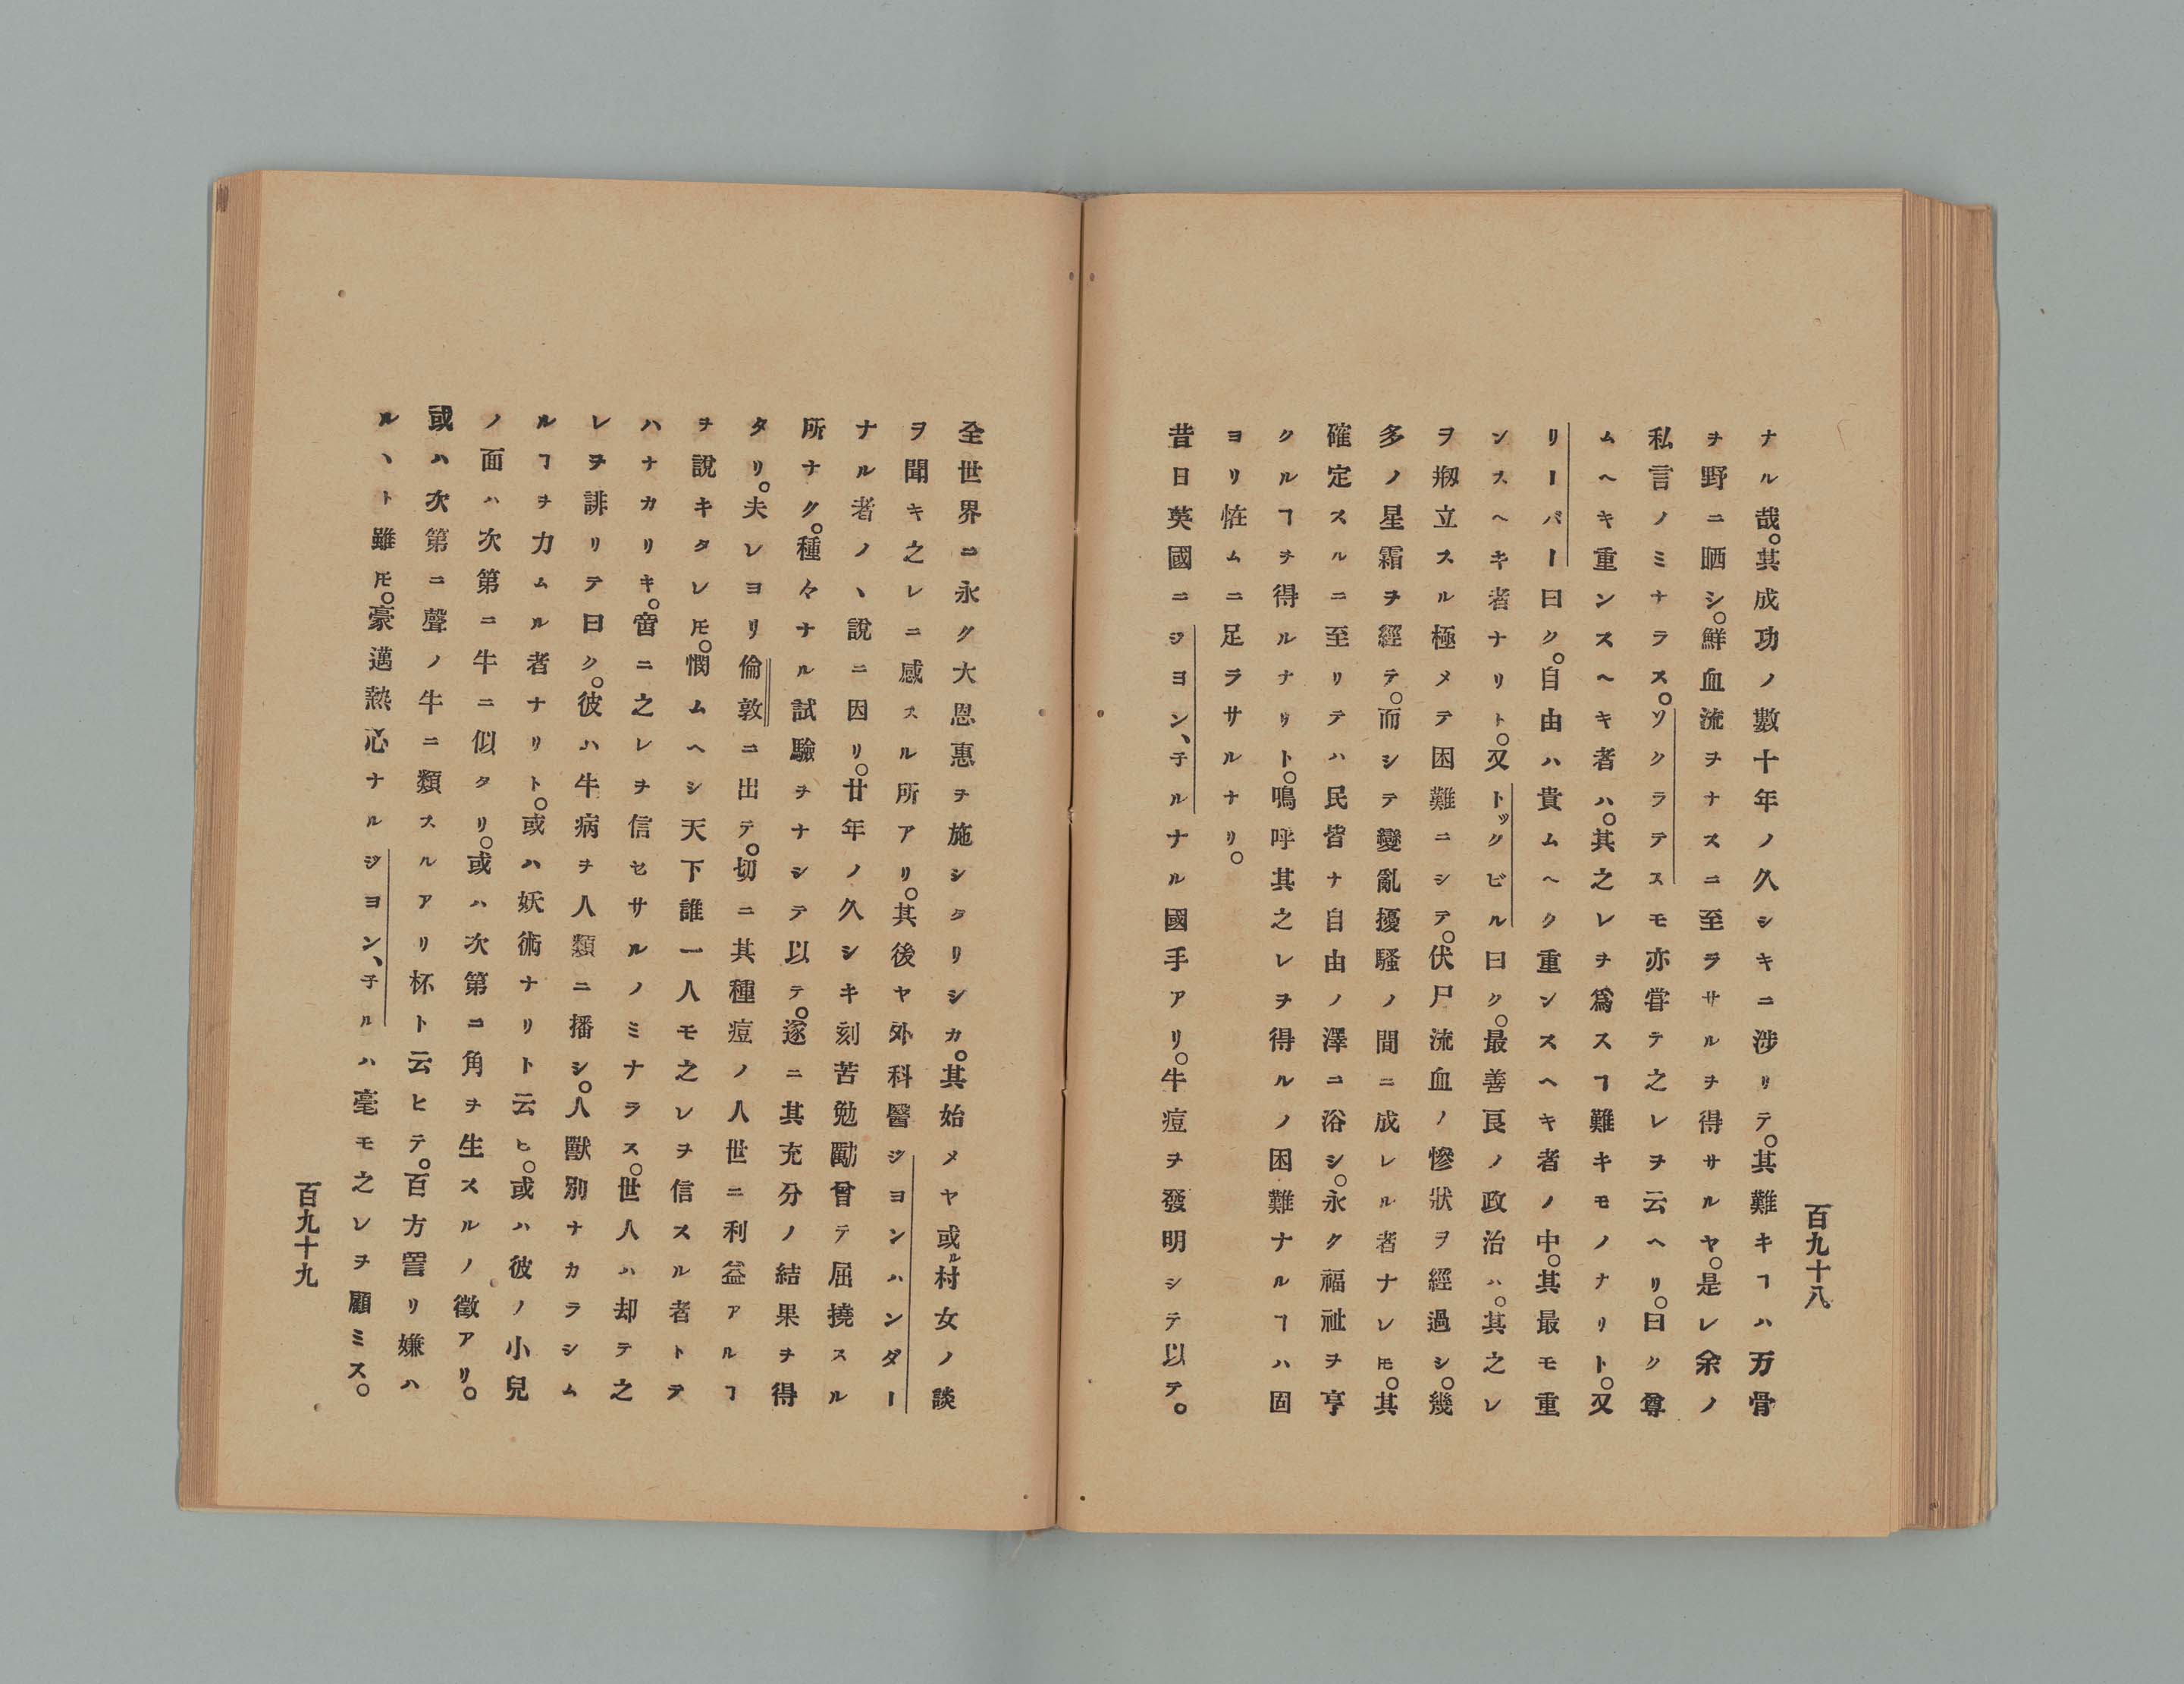 百九十八
ナル哉。其成功ノ數十年ノ久シキニ涉リテ。其難キヿハ万骨
ヲ野ニ晒シ。鮮血流ヲナスニ至ラサルヲ得サルヤ。是レ余ノ
私言ノミナラス。ソクラテスモ亦甞テ之レヲ云ヘリ。曰ク尊
ムヘキ重ンスヘキ者ハ。其之レヲ爲スヿ難キモノナリト。又
リーバー曰ク。自由ハ貴ムヘク重ンスヘキ者ノ中。其最モ重
ンスヘキ者ナリト。又トックビル曰ク。最善良ノ政治ハ。其之レ
ヲ剏立スル極メテ困難ニシテ。伏尸流血ノ慘狀ヲ經過シ。幾
多ノ星霜ヲ經テ。而シテ變亂擾騷ノ間ニ成レル者ナレ𪜈。其
確定スルニ至リテハ民皆ナ自由ノ澤ニ浴シ。永ク福祉ヲ亨
クルヿヲ得ルナリト。嗚呼其之レヲ得ルノ困難ナルヿハ固
ヨリ恠ムニ足ラサルナリ。
昔日英國ニジヨン、子ルナル國手アリ。牛痘ヲ發明シテ以テ。
全世界ニ永ク大恩惠ヲ施シタリシカ。其始メヤ或ル村女ノ談
ヲ聞キ之レニ感スル所アリ。其後ヤ外科醫ジヨンハンダー
ナル者ノ、說ニ因リ。廿年ノ久シキ刻苦勉勵曾テ屈撓スル
所ナク。種々ナル試驗ヲナシテ以テ。遂ニ其充分ノ結果ヲ得
タリ。夫レヨリ倫敦ニ出テ。切ニ其種痘ノ人世ニ利益アルヿ
ヲ說キタレ𪜈。憫ムヘシ天下誰一人モ之レヲ信スル者トテ
ハナカリキ。啻ニ之レヲ信セサルノミナラス。世人ハ却テ之
レヲ誹リテ曰ク。彼ハ牛病ヲ人類ニ播シ。人獸別ナカラシム
ルヿヲ力ムル者ナリト。或ハ妖術ナリト云ヒ。或ハ彼ノ小兒
ノ面ハ次第ニ牛ニ似タリ。或ハ次第ニ角ヲ生スルノ徵アリ。
或ハ次第ニ聲ノ牛ニ類スルアリ杯ト云ヒテ。百方詈リ嫌ハ
ル、ト雖𪜈。豪邁熱心ナルジヨン、子ルハ毫モ之レヲ顧ミス。
百九十九